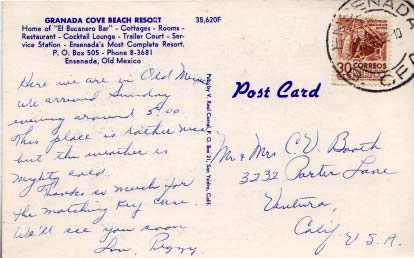 GRANADA COVE BEACH RESORT
Home of "El Bucanero Bar" - Cottages - Rooms -
Restaurant - Cocktail Lounge - Trailer Court - Ser-
vice Station - Ensenada's Most Complete Resort.
P. O. Box 505 - Phone 8-3681
Ensenada, Old Mexico
35,620F
Here we are in Old Mexico
We arrived Sunday
evening around 5:00.
This place is rather nice
but the weather is
mighty cold.
Thanks so much for
the matching key case.
We'll see you soon
Lou, Peggy
Pub. by V. Paul Cornet, P. O. Box 21, San Ysidro, Calif.
Post Card
ENSENADA
30
CORREOS
Mr & Mrs C. W. Booth
3232 Porter Lane
Ventura,
Calif
U.S.A.